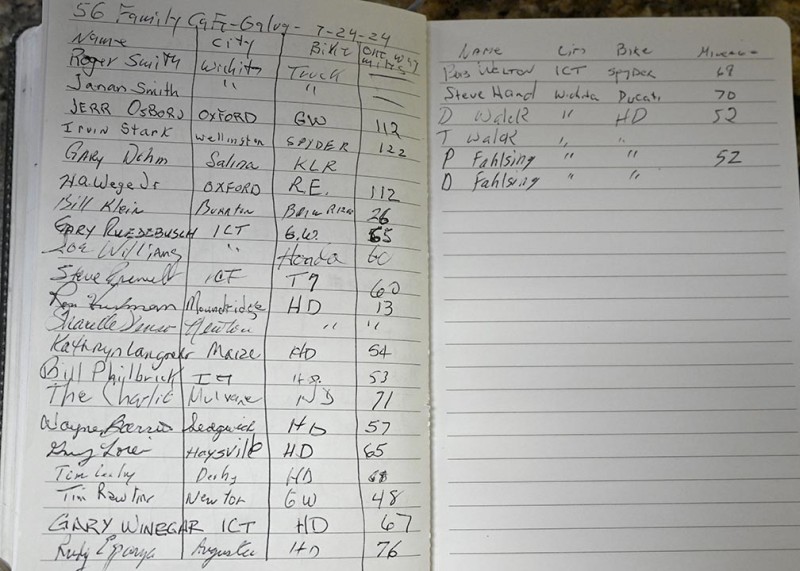 56 Family Cafe - Galva - 7-24-24
Name City Bike one way miles
Roger Smith Wichita Truck —
Janan Smith " —
JERR OSBORN OXFORD GW 112
Irvin Stark Wellington SPYDER 122
GARY Dehm Salina KLR
H.A. Wege Jr OXFORD R.E. 112
Bill Klein Burrton 26
GARY RUEDEBUSCH ICT G.W. 65
Zoe Williams " Honda 60
Steve ICT T7 60
Ron Moundridge HD 13
Sharelle Newton " "
Kathryn Maize HD 54
Bill Philbrick 53
The Charlie Mulvane HD 71
Wayne Sedgwick HD 57
Haysville HD 65
Tim Derby HD 68
Tim Newton GW 48
GARY WINEGAR ICT HD 67
Rudy Esparza Augusta HD 76
NAME City Bike Mileage
WELTON ICT SPYDER 69
Steve Hand Wichita Ducati 70
D Walck " HD 52
T Walck " "
P Fahlsing " " 52
D Fahlsing " "